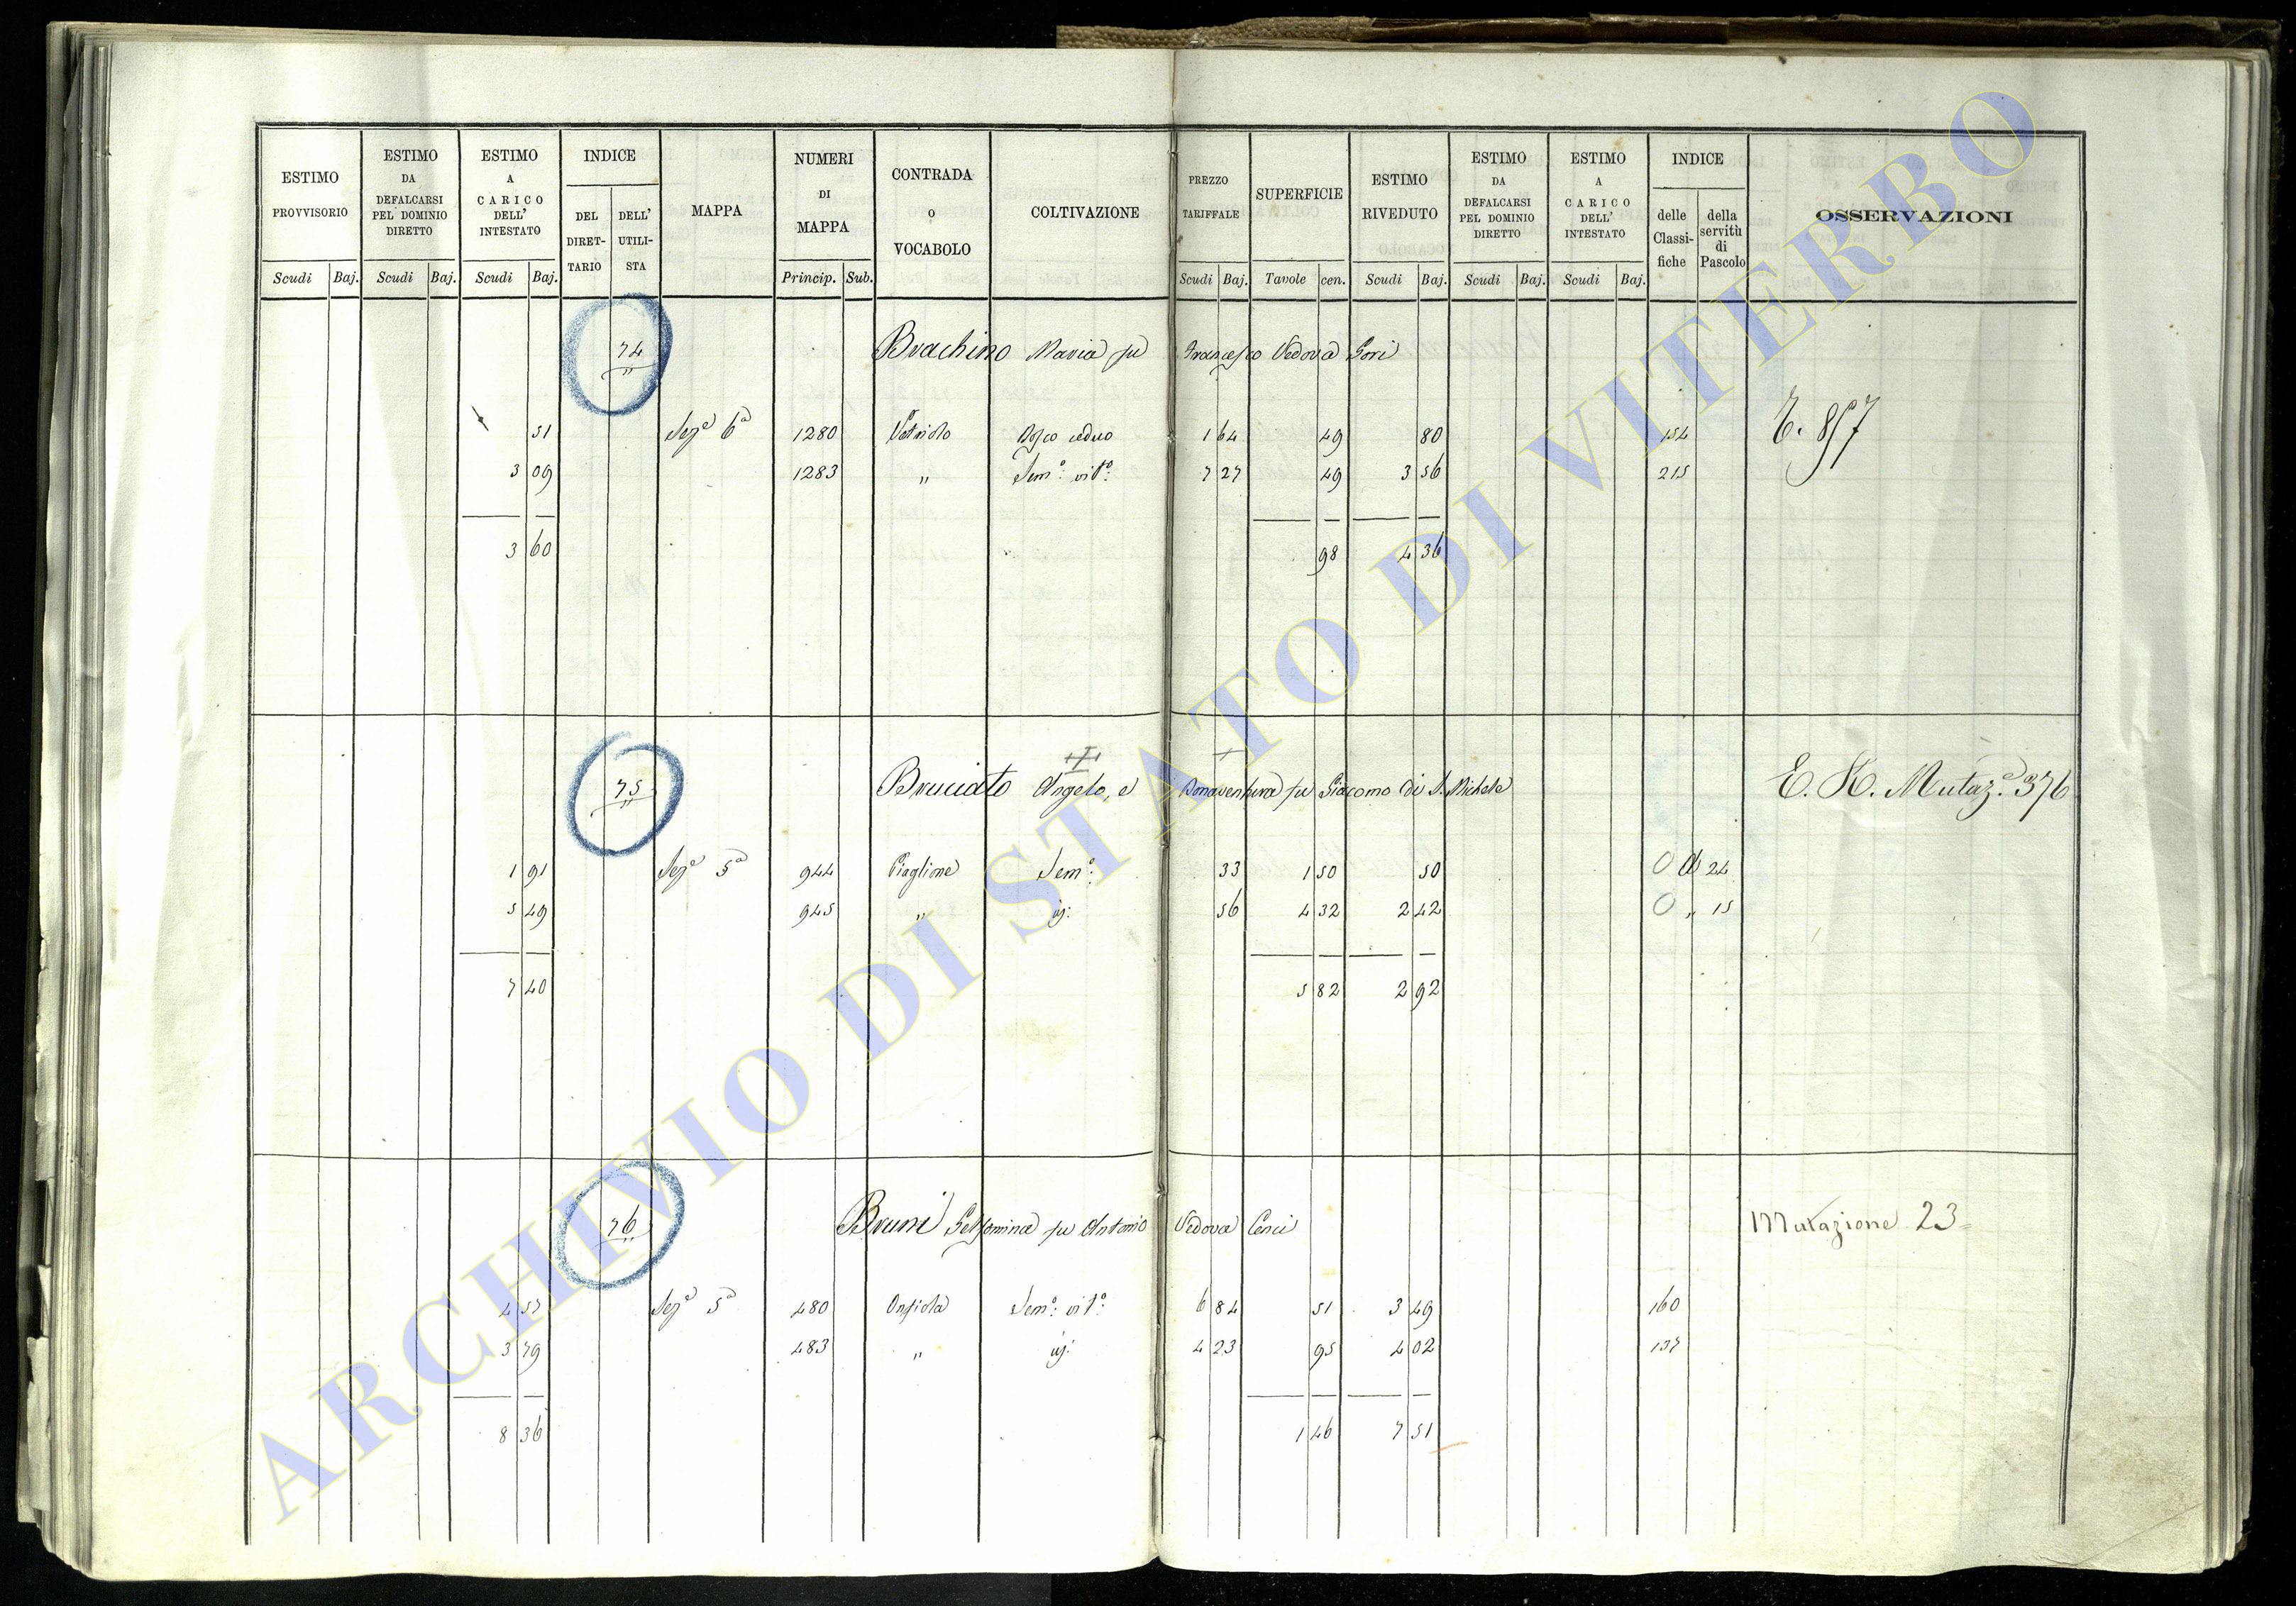 ESTIMO PROVVISORIO
Scudi Baj.
ESTIMO DA DEFALCARSI PEL DOMINIO DIRETTO
Scudi Baj.
ESTIMO A CARICO DELL' INTESTATO
Scudi Baj.
INDICE
DEL DIRET- TARIO
DELL' UTILI- STA
MAPPA
NUMERI DI MAPPA
Princip. Sub.
CONTRADA o VOCABOLO
COLTIVAZIONE
PREZZO TARIFFALE
Scudi Baj.
SUPERFICIE
Tavole cen.
ESTIMO RIVEDUTO
Scudi Baj.
ESTIMO DA DEFALCARSI PEL DOMINIO DIRETTO
Scudi Baj.
ESTIMO A CARICO DELL' INTESTATO
Scudi Baj.
INDICE
delle Classi- fiche
della servitù di Pascolo
OSSERVAZIONI
74 Brachino Maria fu Francesco Vedova Gori
51 Sez.e 6a 1280 Vetriolo Bosco ceduo 1 64 49 80 154 E. 857
3 09 1283 " Sem.o vit.o 7 27 49 3 56 215
3 60 98 4 36
75 Bruciato Angelo, e Bonaventura fu Giacomo di S. Michele E. R. Mutaz.e 376
1 91 Sez.e 5a 944 Piaglione Sem.o 33 1 50 50 24
5 49 945 " id: 56 4 32 2 42 " 15
7 40 5 82 2 92
76 Bruni Gelsomina fu Antonio Vedova Cenci Mutazione 23
4 57 Sez.e 5a 480 Sem.o vit.o 6 84 51 3 49 160
3 79 483 " id: 4 23 95 4 02 137
8 36 1 46 7 51
ARCHIVIO DI STATO DI VITERBO